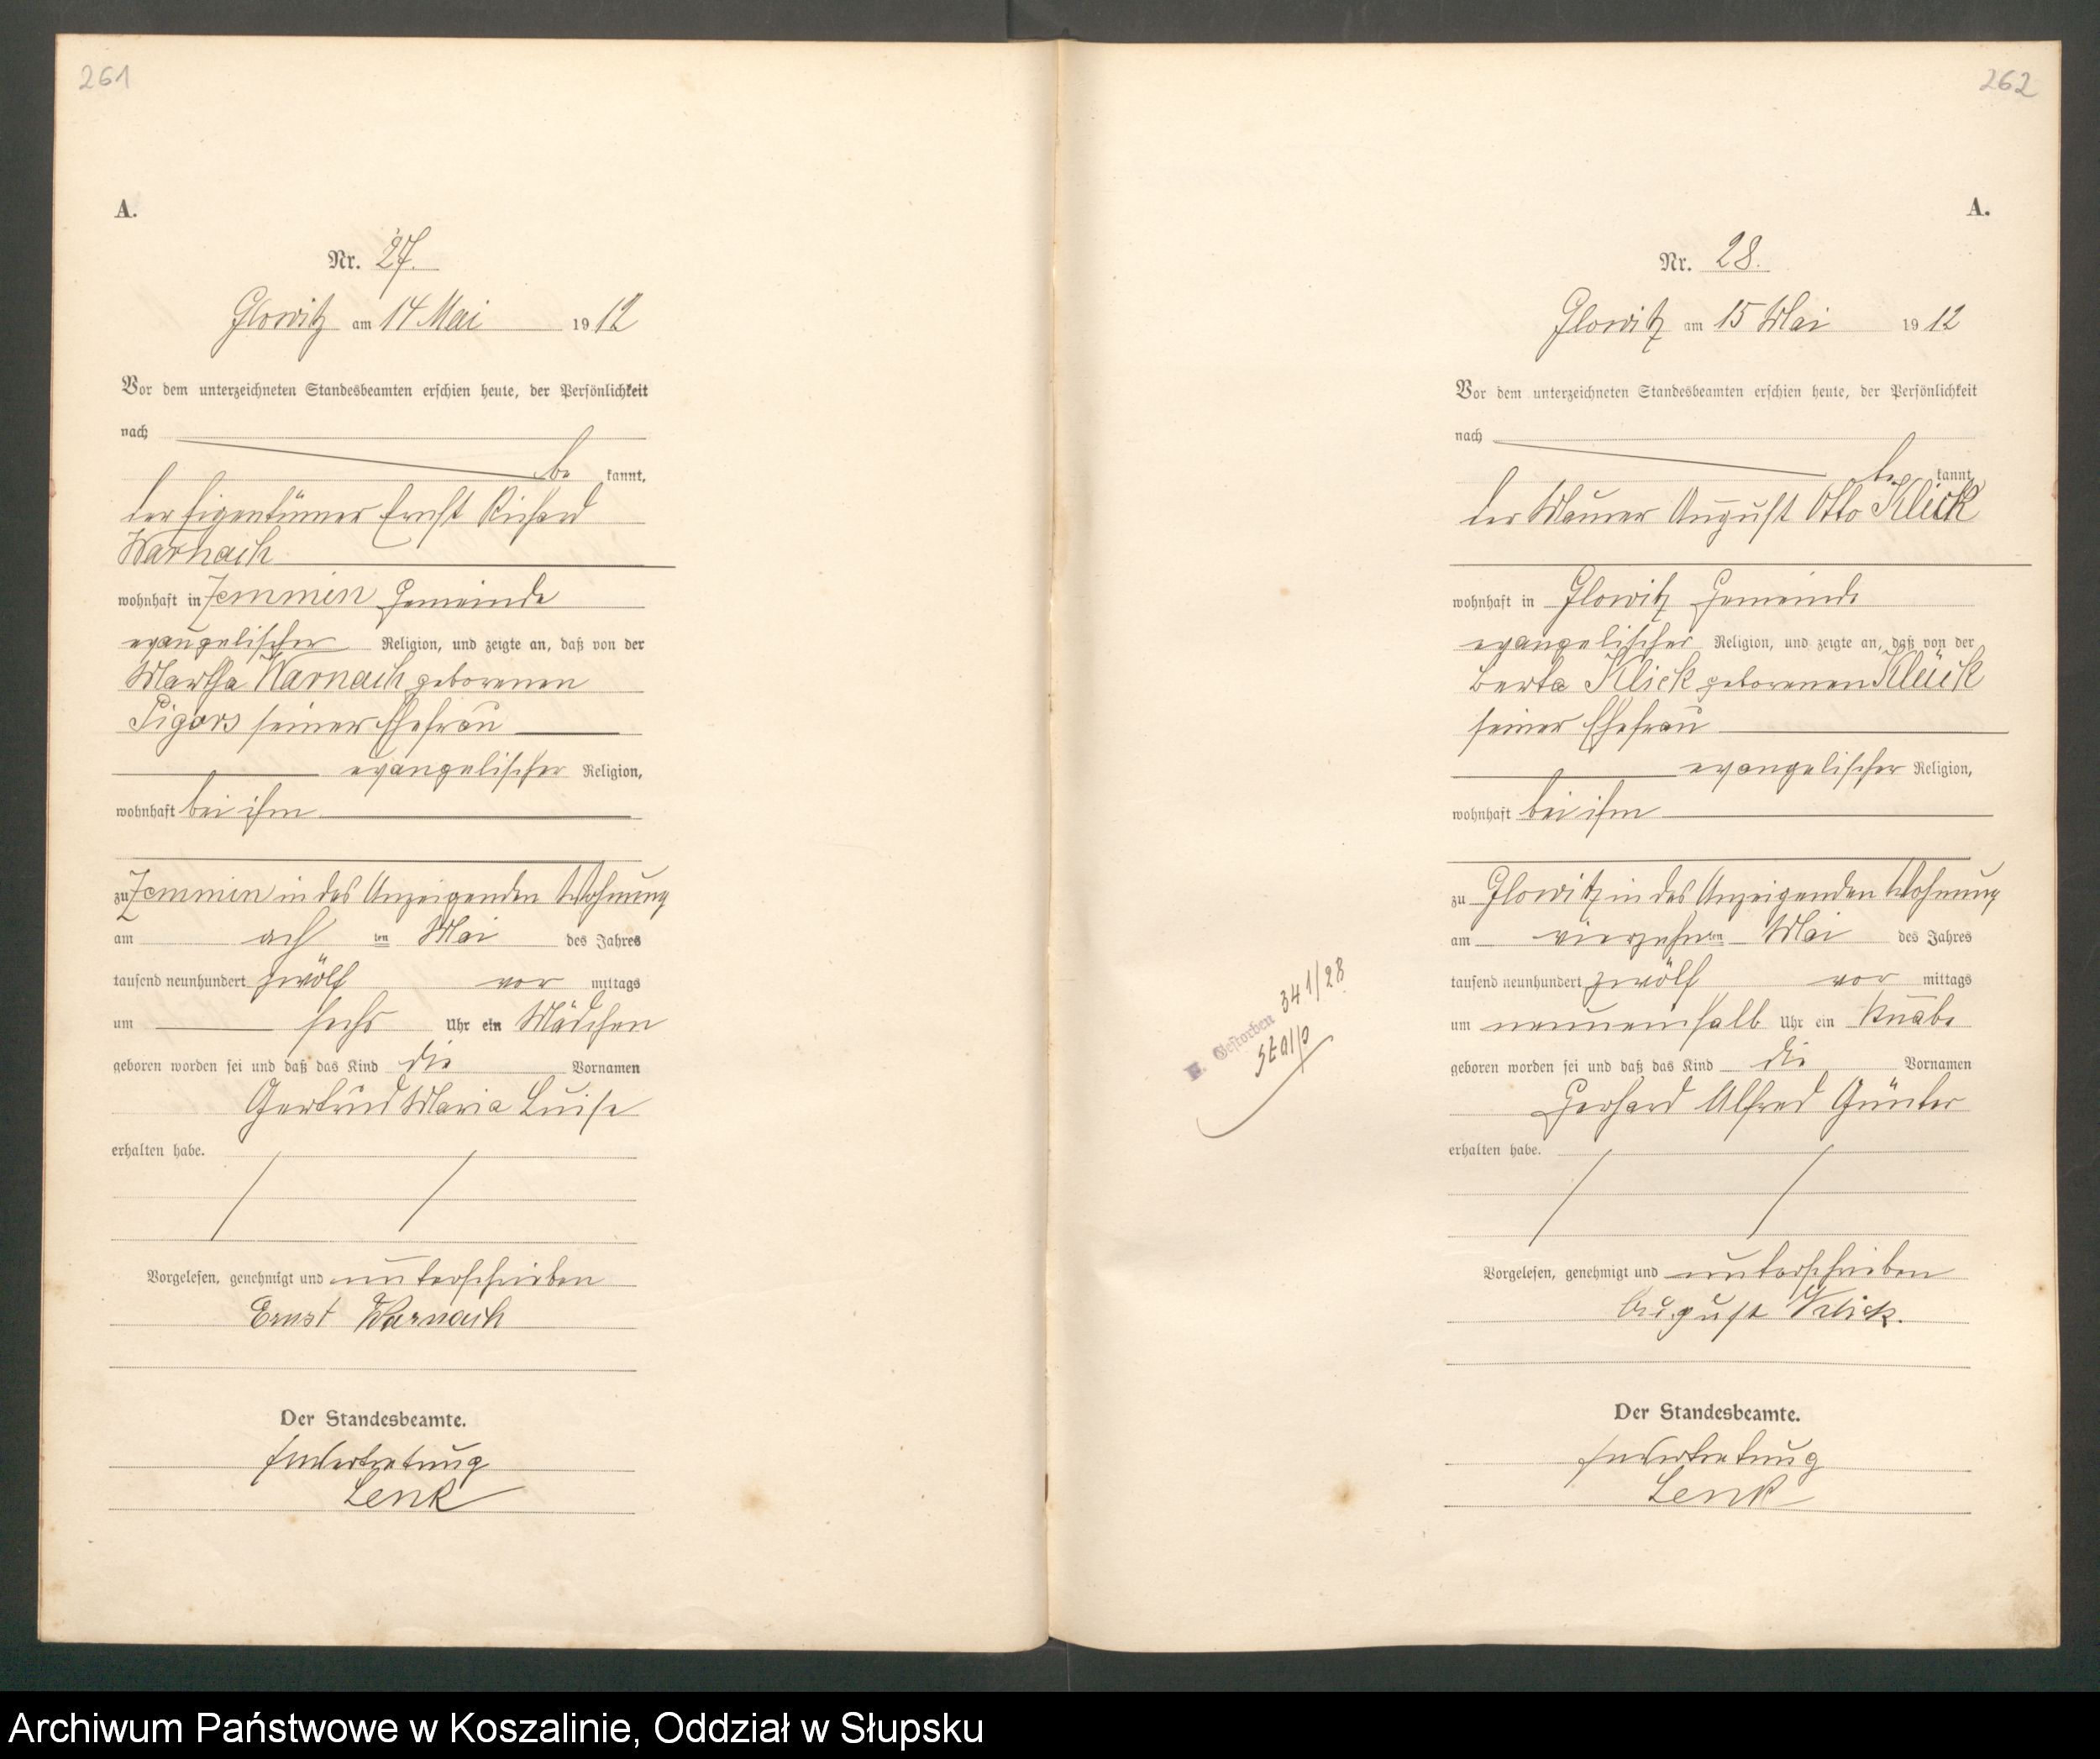 261
A.
Nr. 27.
Glowitz am 14 Mai 1912
Vor dem unterzeichneten Standesbeamten erschien heute, der Persönlichkeit
nach
be kannt,
der Eigentümer Ernst Richard
Warnach
wohnhaft in Zemmin Gemeinde
evangelischer Religion, und zeigte an, daß von der
Martha Warnach geborenen
Pigors seiner Ehefrau
evangelischer Religion,
wohnhaft bei ihm
zu Zemmin in des Anzeigenden Wohnung
am ach ten Mai des Jahres
tausend neunhundert zwölf vor mittags
um sechs Uhr ein Mädchen
geboren worden sei und daß das Kind die Vornamen
Gertrud Maria Luise
erhalten habe.
Vorgelesen, genehmigt und unterschrieben
Ernst Warnach
Der Standesbeamte.
In Vertretung
Lenk
262
A.
Nr. 28.
Glowitz am 15 Mai 1912
Vor dem unterzeichneten Standesbeamten erschien heute, der Persönlichkeit
nach
be kannt,
der Maurer August Otto Klick
wohnhaft in Glowitz Gemeinde
evangelischer Religion, und zeigte an, daß von der
Berta Klick geborenen Klück
seiner Ehefrau
evangelischer Religion,
wohnhaft bei ihm
zu Glowitz in des Anzeigenden Wohnung
am vierzehn ten Mai des Jahres
tausend neunhundert zwölf vor mittags
um neuneinhalb Uhr ein Knabe
geboren worden sei und daß das Kind die Vornamen
Gerhard Alfred Günter
erhalten habe.
Vorgelesen, genehmigt und unterschrieben
August Klick.
Der Standesbeamte.
In Vertretung
Lenk
Gestorben 341/28
Stolp
Archiwum Państwowe w Koszalinie, Oddział w Słupsku